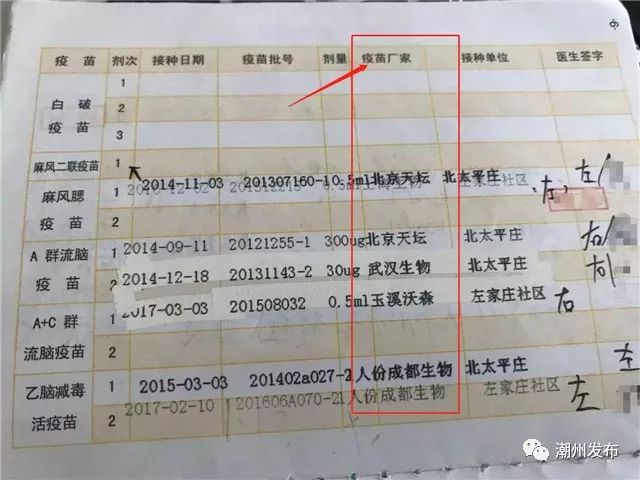 疫 苗 剂次 接种日期 疫苗批号 剂量 疫苗厂家 接种单位 医生签字
白 破 疫 苗 1
2
3
麻风二联疫苗 1 2014-11-03 201307160-1 0.5ml 北京天坛 北太平庄 左
麻风腮 疫 苗 1 左家庄社区 左
2
A 群流脑 疫 苗 1 2014-09-11 20121255-1 300ug 北京天坛 北太平庄 右
2 2014-12-18 20131143-2 30ug 武汉生物 北太平庄 右
A+C 群 流脑疫苗 1 2017-03-03 201508032 0.5ml 玉溪沃森 左家庄社区 右
2
乙脑减毒 活疫苗 1 2015-03-03 201402a027-2 人份 成都生物 北太平庄 左
2 2017-02-10 201606A070-2 1人份 成都生物 左家庄社区 左
潮州发布